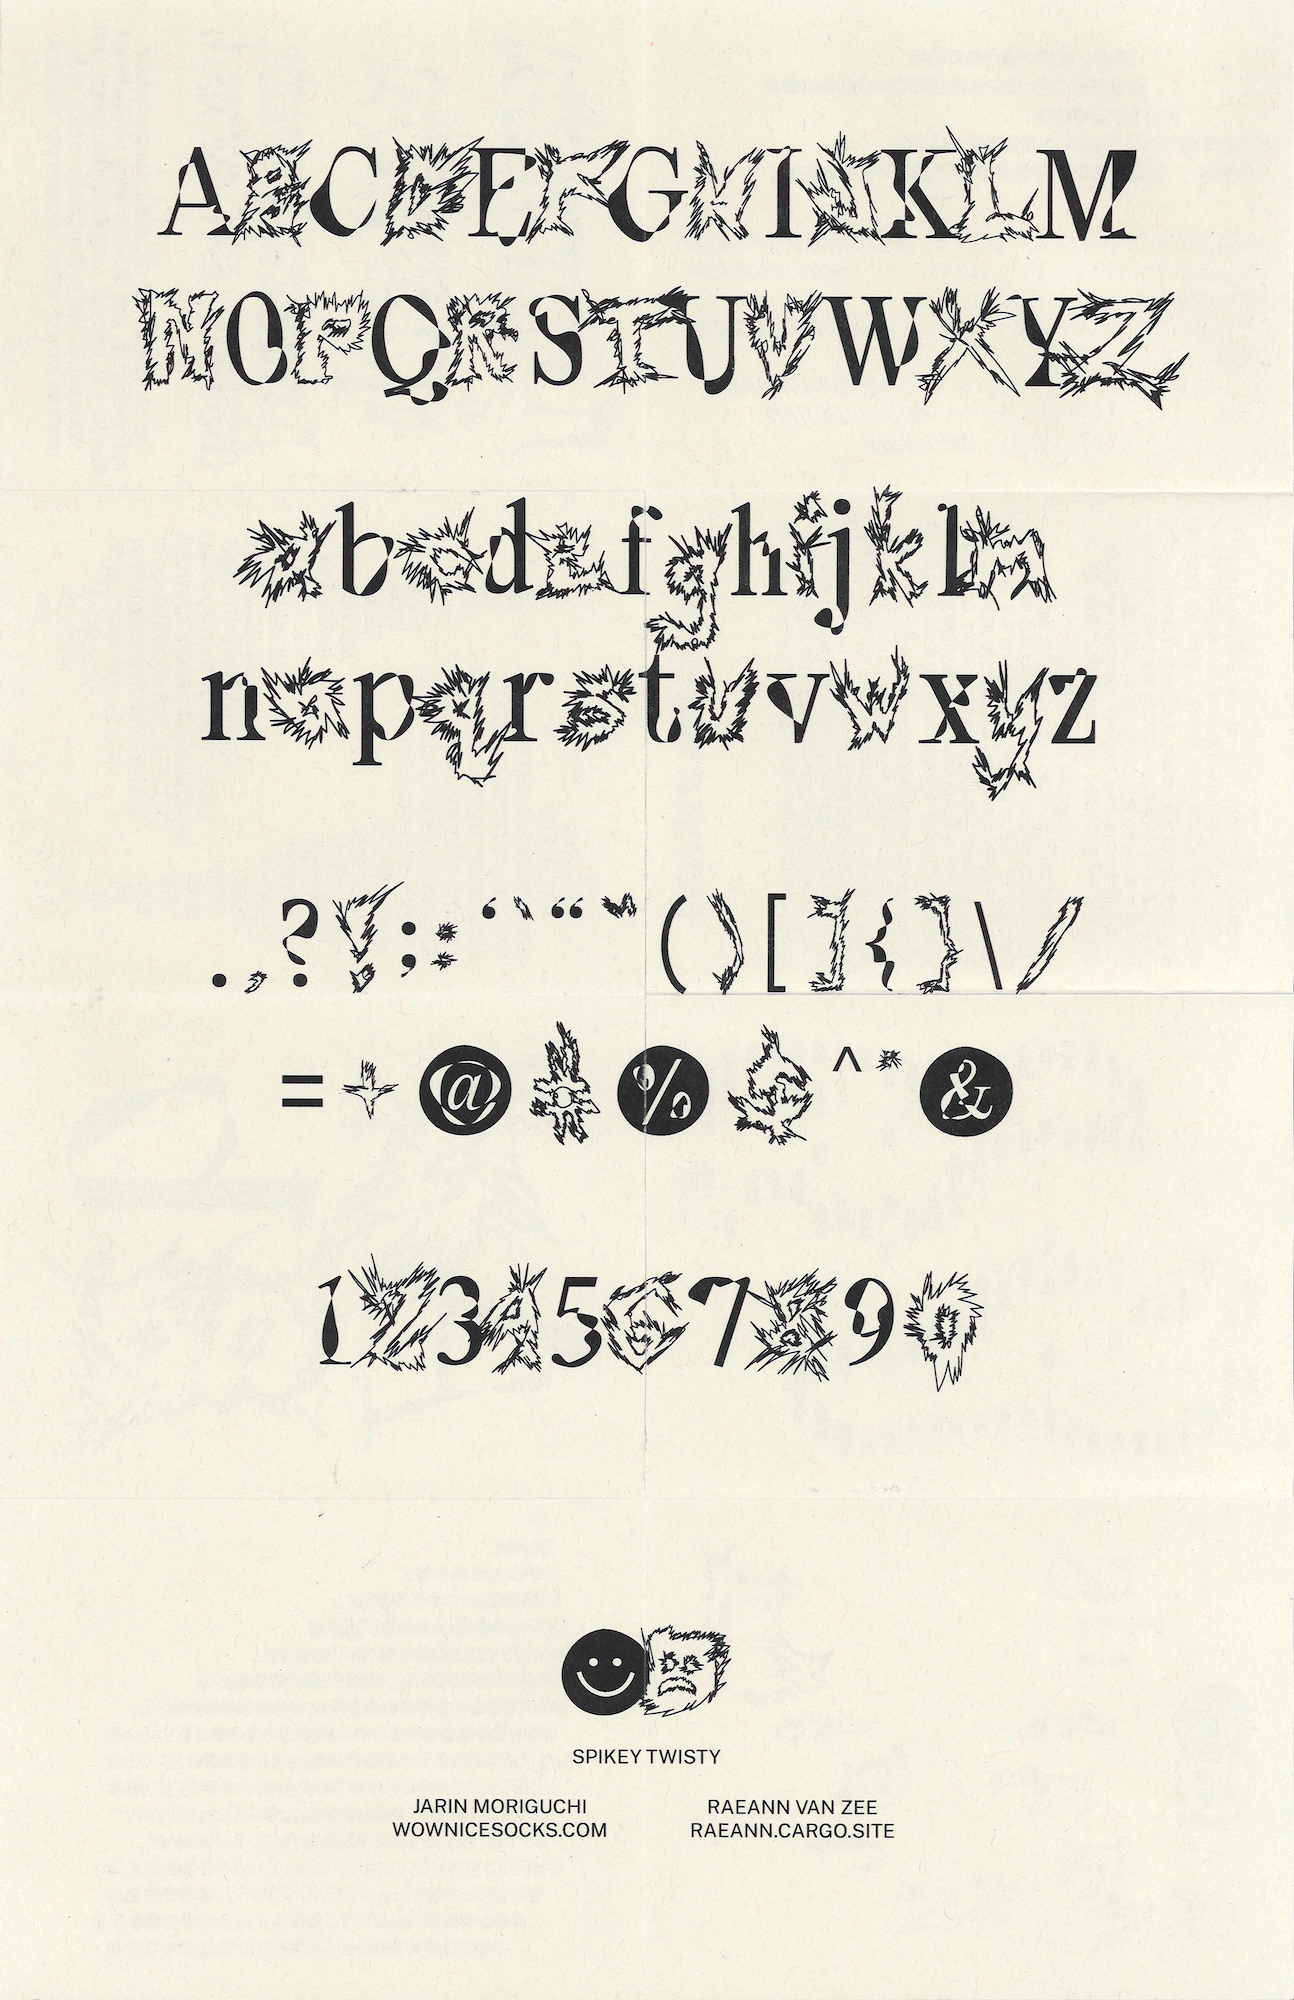 ABCDEFGHIJKLM
NOPQRSTUVWXYZ
abcdefghijklm
nopqrstuvwxyz
.,?!;:‘’“”()[]{}\/
=+@#%$^*&
1234567890
SPIKEY TWISTY
JARIN MORIGUCHI
WOWNICESOCKS.COM
RAEANN VAN ZEE
RAEANN.CARGO.SITE